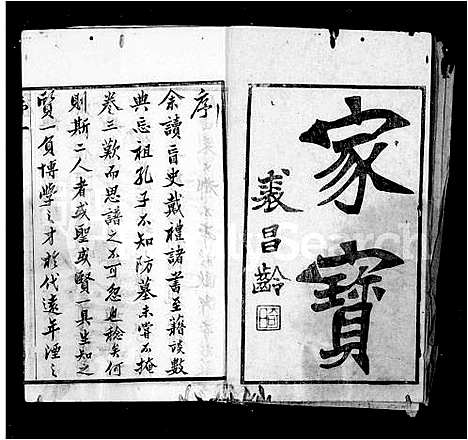 家寶
裘昌齡
序
余讀盲史戴禮諸書至籍談數
典忘祖孔子不知防墓未嘗不掩
卷三歎而思譜之不可忽也稔矣何
則斯二人者或聖或賢一具生知之
質一負博學之才於代遠年湮之
Search